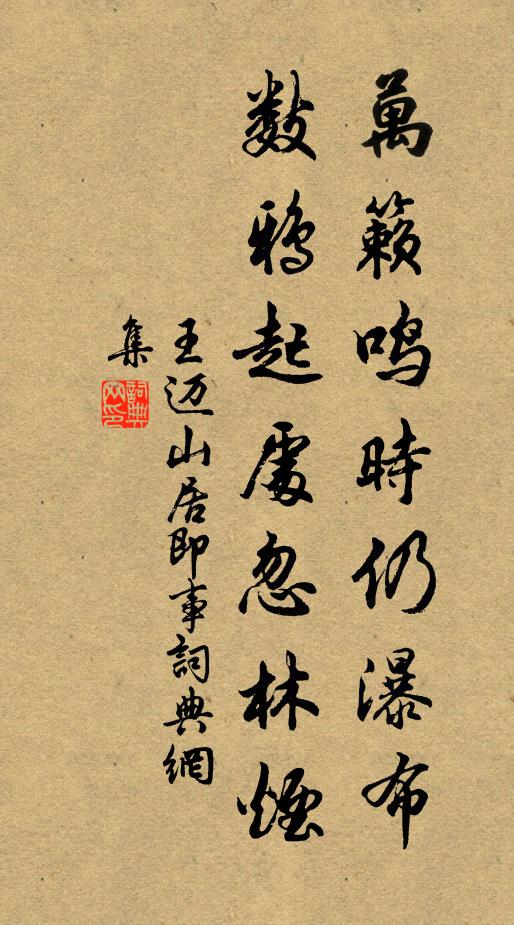 萬籟鳴時仍瀑布
數鴉起處忽林煙
王迈山居即事詞典網
集
詞典网印